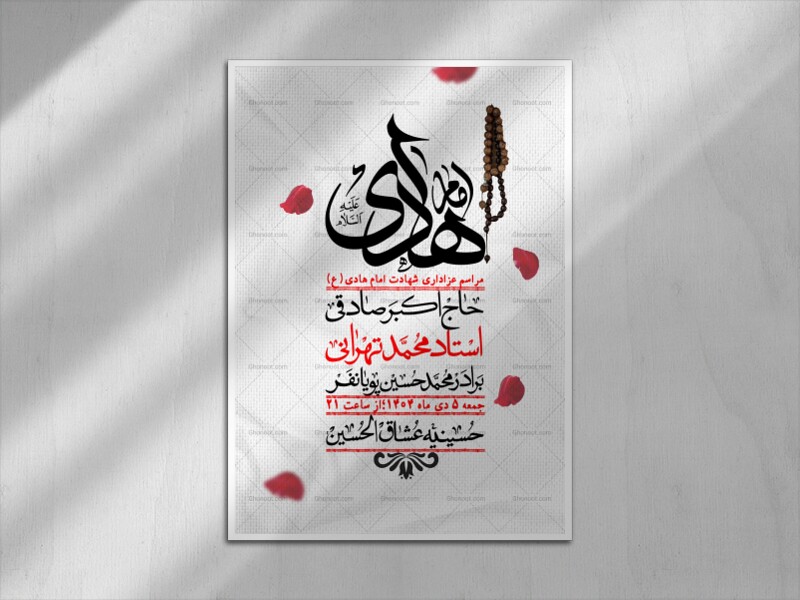 امام هادی
علیه السلام
مراسم عزاداری شهادت امام هادی (ع)
حاج اکبر صادقی
استاد محمد تهرانی
برادر محمدحسین پویانفر
جمعه ۵ دی ماه ۱۴۰۴؛از ساعت ۲۱
حسینیه عشاق الحسین
Ghonoot.com